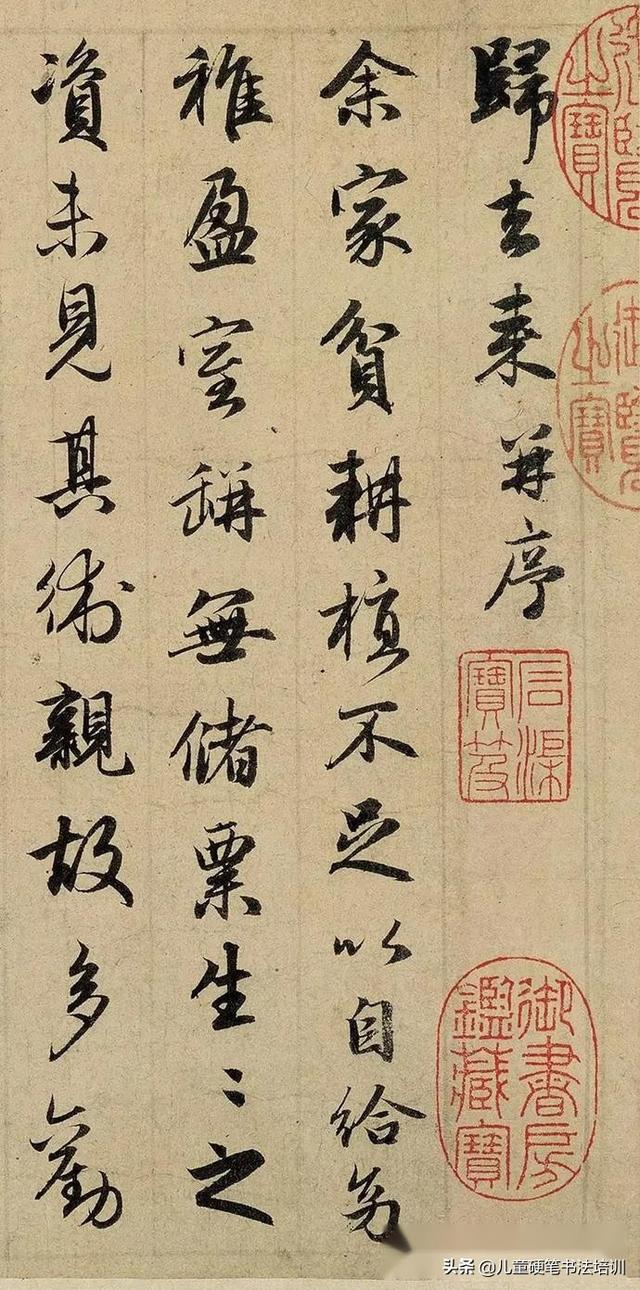 歸去来并序
余家貧耕植不足以自給幼
稚盈室缾無儲粟生〻之
資未見其術親故多勸
之寶
御覽之寶
石渠寶笈
御書房鑑藏寶
头条 @儿童硬笔书法培训